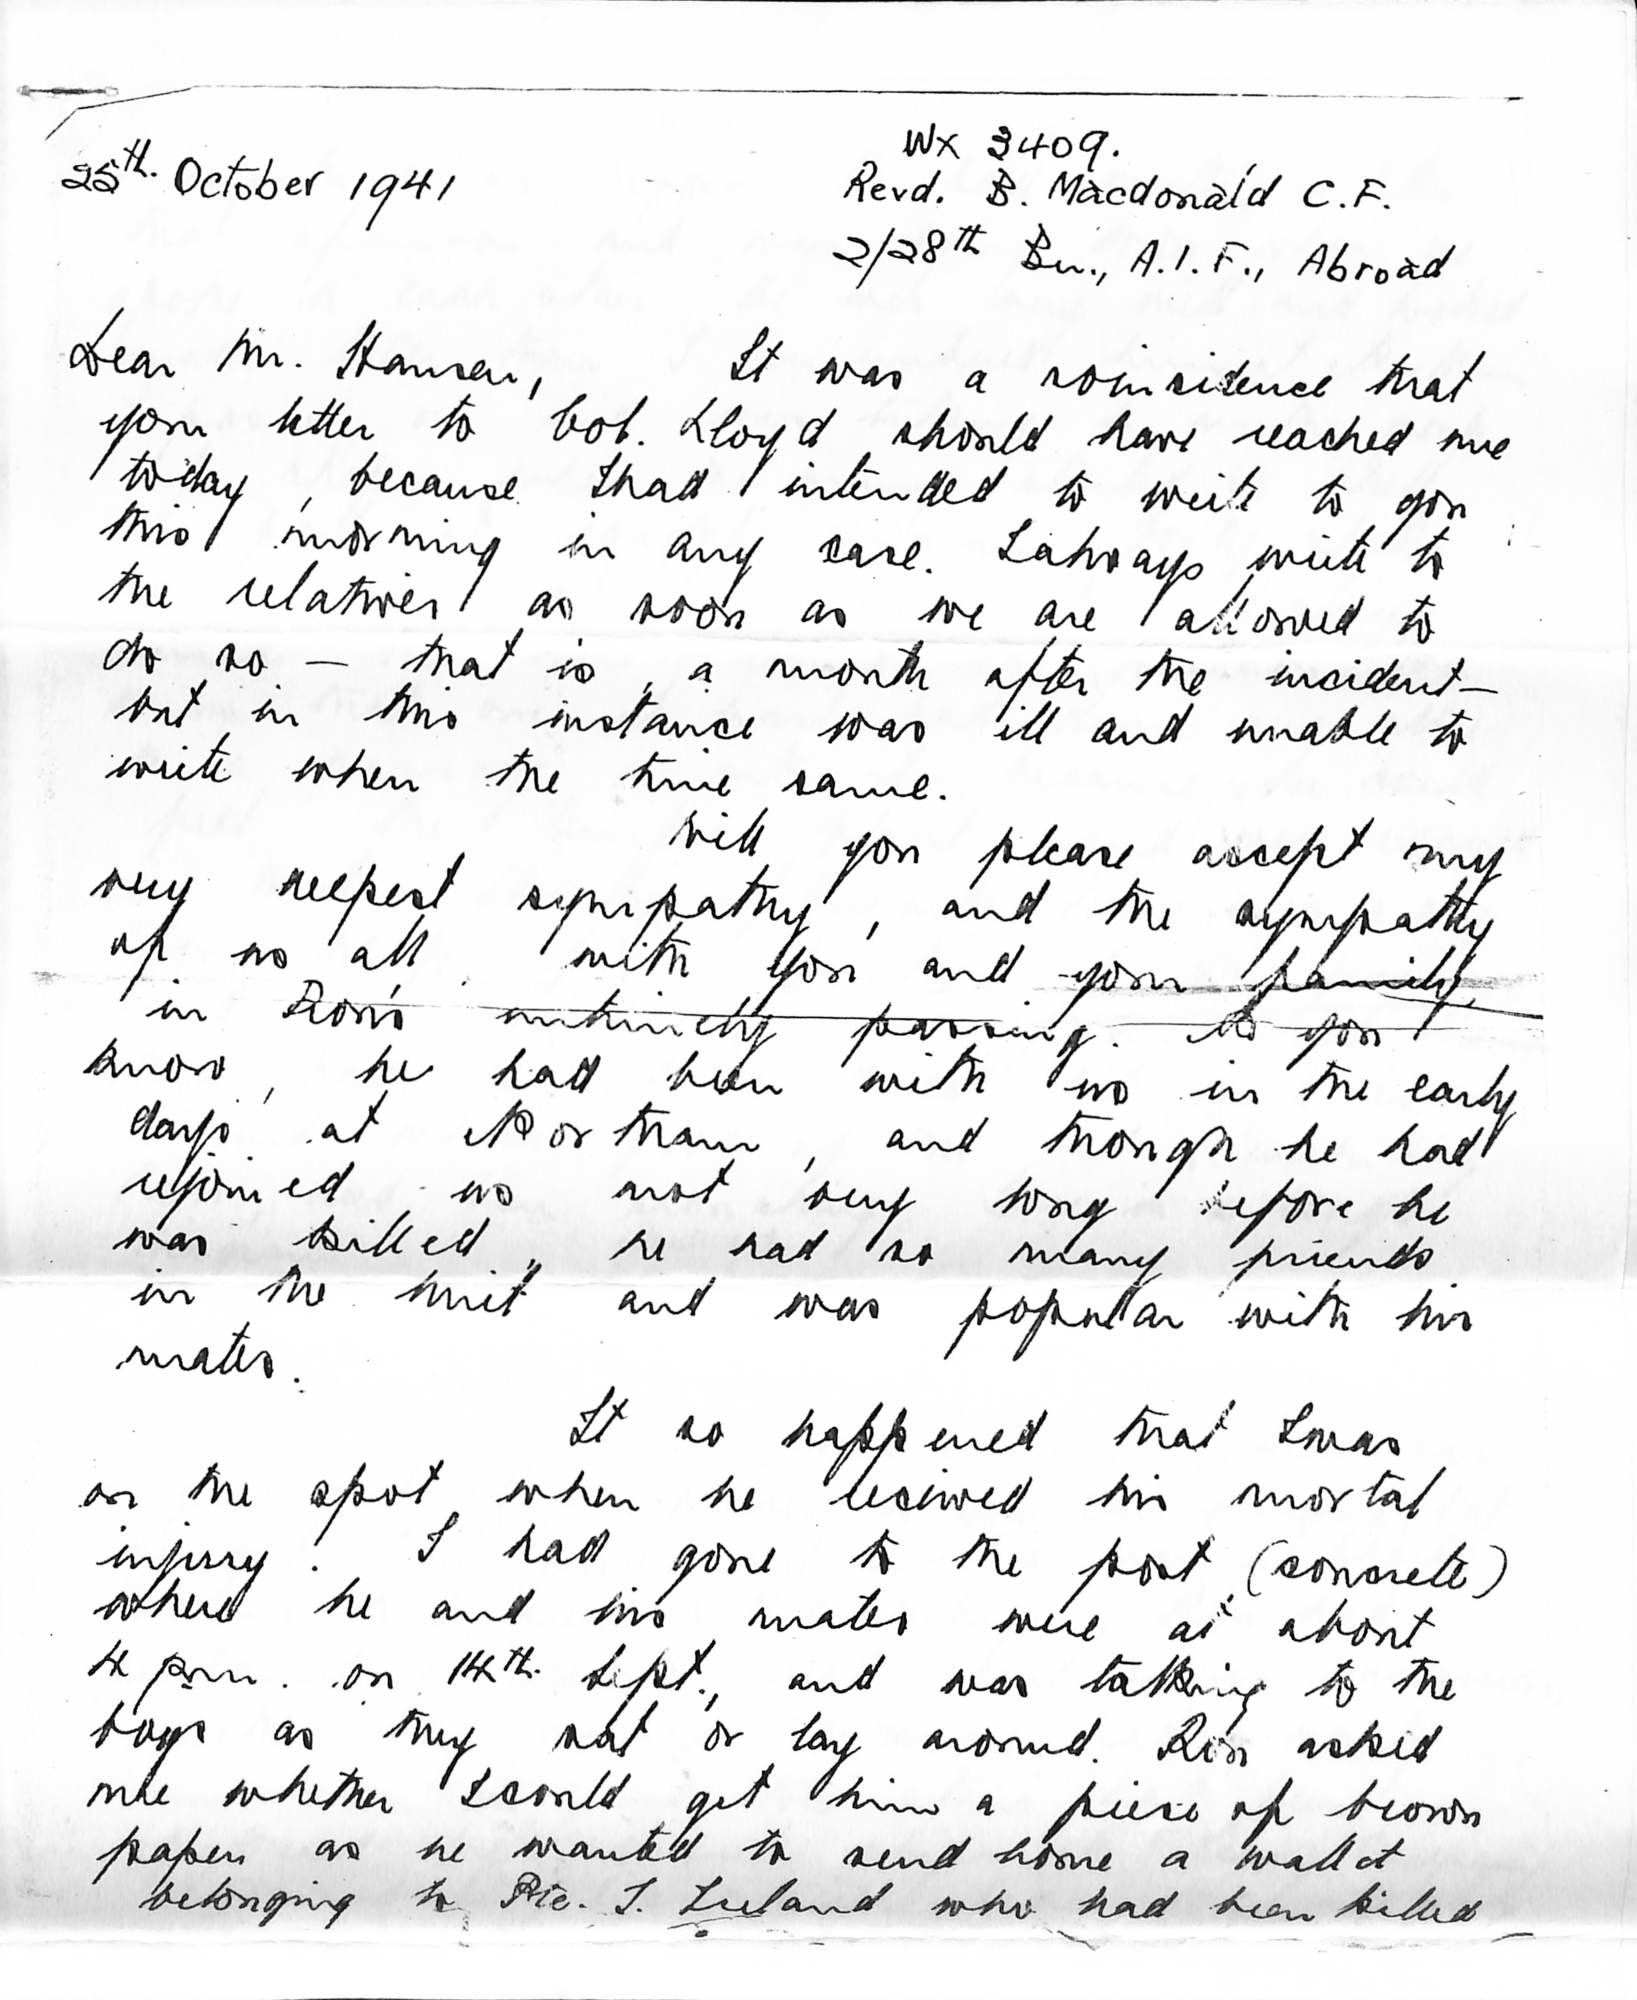 WX 3409.
25th. October 1941
Revd. B. Macdonald C.F.
2/28th Bn., A.I.F., Abroad
Dear Mr. Hansen, It was a coincidence that
your letter to Col. Lloyd should have reached me
today, because I had intended to write to you
this morning in any case. I always write to
the relatives as soon as we are allowed to
do so — that is, a month after the incident —
but in this instance was ill and unable to
write when the time came.
Will you please accept my
very deepest sympathy, and the sympathy
of us all with you and your family
in Ron's untimely passing. As you
know, he had been with us in the early
days at Northam, and though he had
rejoined us not very long before he
was killed, he had so many friends
in the Unit and was popular with his
mates.
It so happened that I was
on the spot when he received his mortal
injury. I had gone to the post (concrete)
where he and his mates were at about
4 p.m. on 14th. Sept., and was talking to the
boys as they sat or lay around. Ron asked
me whether I could get him a piece of brown
paper as he wanted to send home a wallet
belonging to Pte. J. Ireland who had been killed